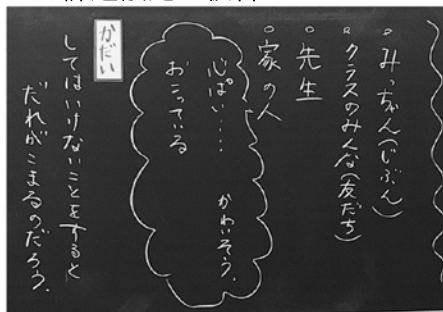 。みっちゃん(じぶん)
。クラスのみんな(友だち)
。先生
。家の人
かわいそう。
心ぱい‥‥
おこっている
かだい
してはいけないことをすると
だれがこまるのだろう。